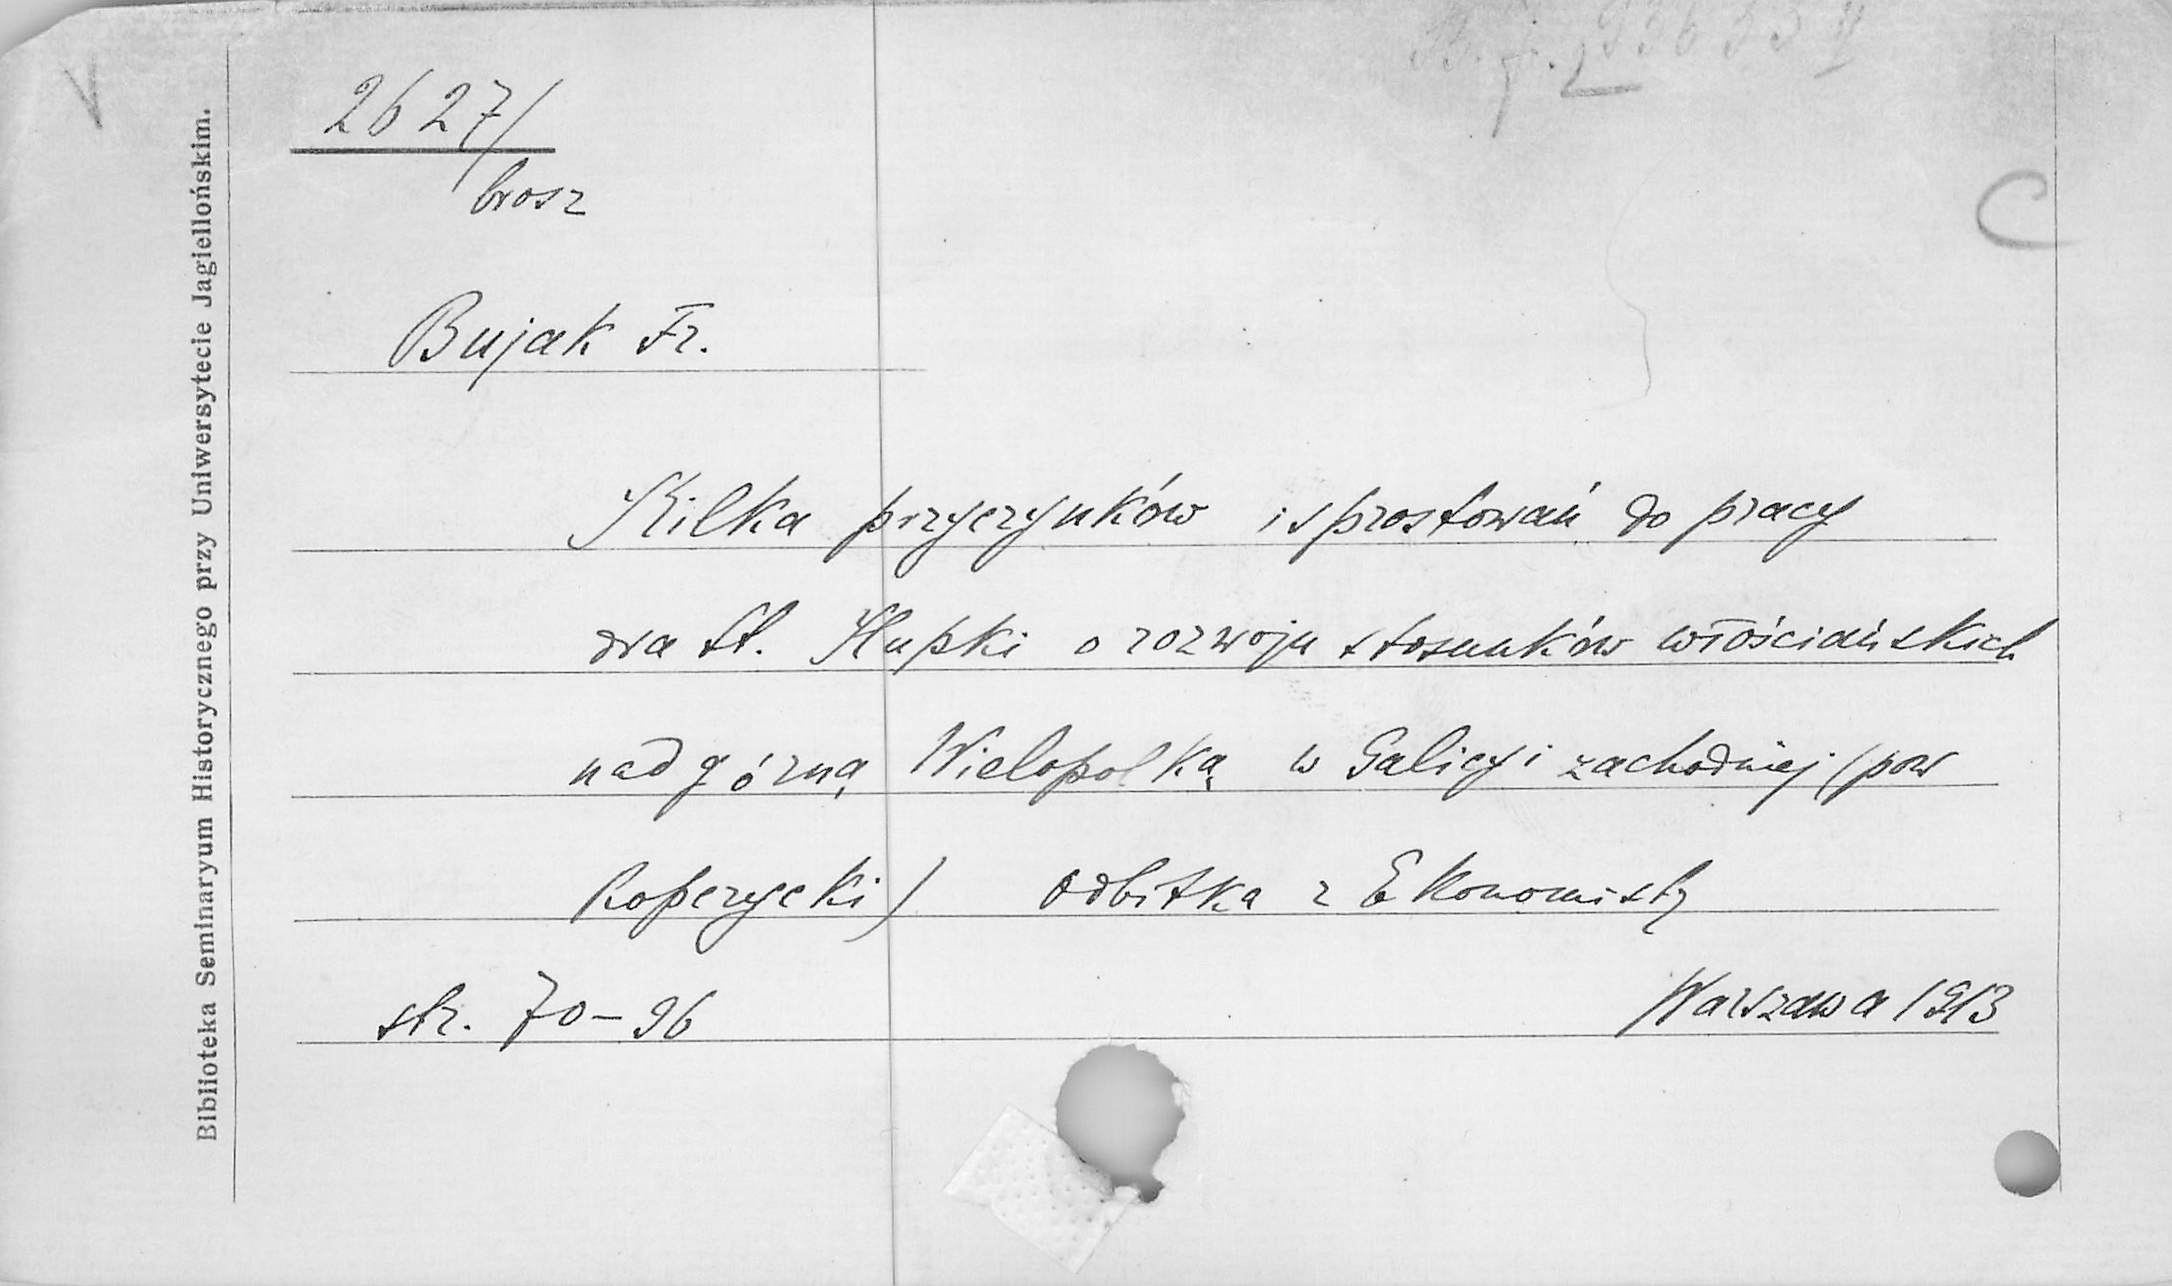 2627/
brosz
C
Bujak Fr.
Kilka przyczynków i sprostowań do pracy
dra St. Hupki o rozwoju stosunków włościańskich
nad górną Wielopolką w Galicyi zachodniej (pow
Ropczycki) odbitka z Ekonomisty
str. 70-96 Warszawa 1913
Biblioteka Seminaryum Historycznego przy Uniwersytecie Jagiellońskim.